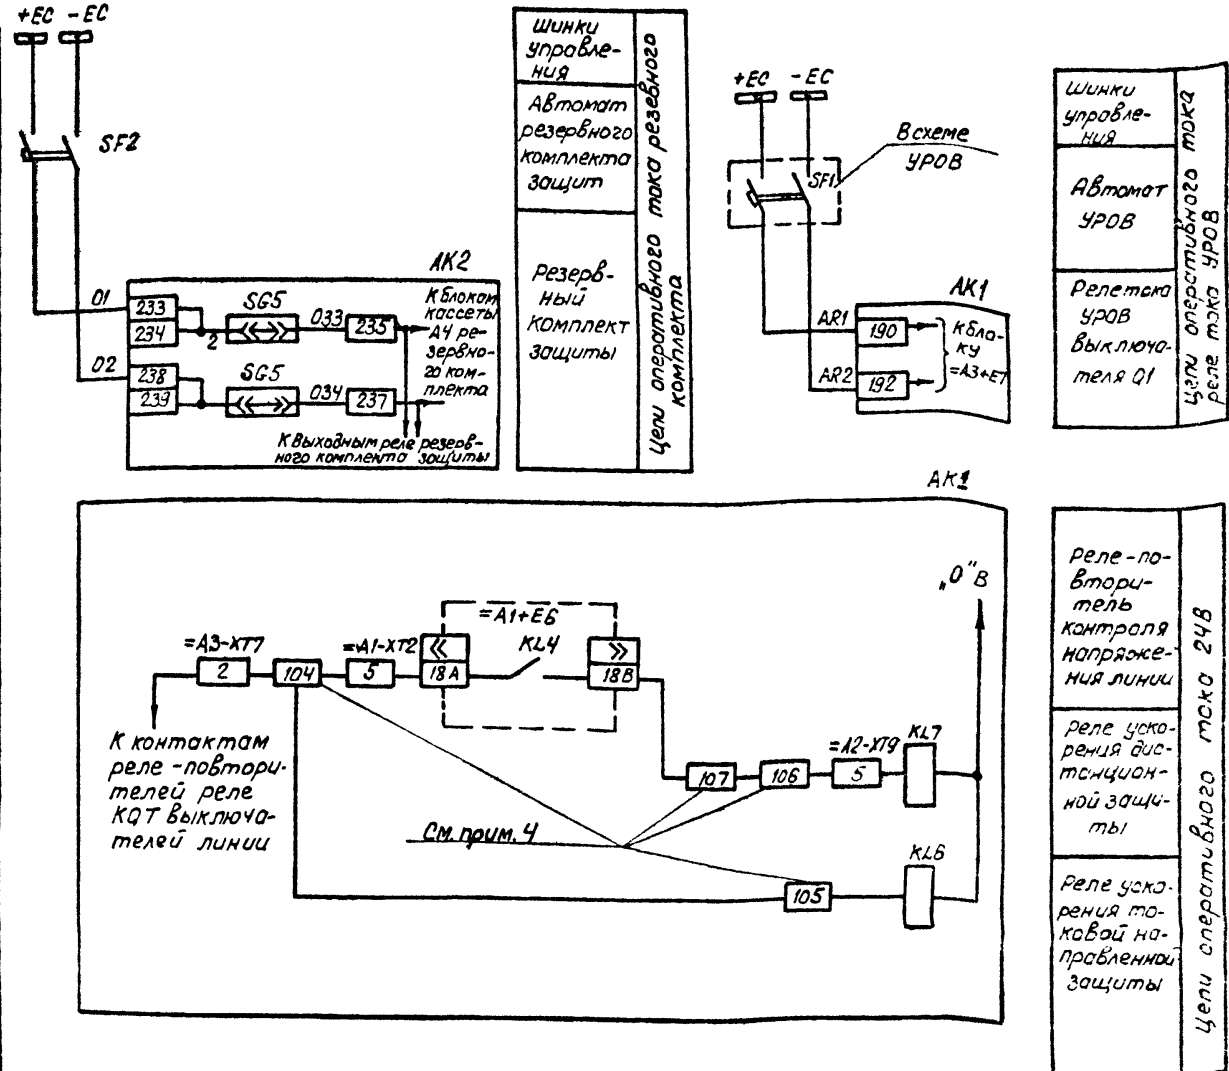 +ЕС -ЕС
SF2
01
02
АК2
233
234
2
SG5
033
235
238
239
SG5
034
237
К блокам
кассеты
А4 ре-
зервно-
го ком-
плекта
К выходным реле резерв-
ного комплекта защиты
Шинки
управле-
ния
Автомат
резервного
комплекта
защит
Резерв-
ный
комплект
защиты
Цепи оперативного тока резевного
комплекта
+ЕС -ЕС
В схеме
УРОВ
SF1
АК1
AR1
190
AR2
192
к бло-
ку
=А3+Е7
Шинки
управле-
ния
Автомат
УРОВ
Реле тока
УРОВ
выключа-
теля Q1
Цепи оперативного тока
реле тока УРОВ
АК1
„0" В
=А1+Е6
=А3-ХТ7
2
104
=А1-ХТ2
5
18А
KL4
18В
К контактам
реле-повтори-
телей реле
KQT выключа-
телей линии
107
106
=А2-ХТ9
5
KL7
См. прим. 4
105
KL6
Реле-по-
втори-
тель
контроля
напряже-
ния линии
Реле уско-
рения дис-
танцион-
ной защи-
ты
Реле уско-
рения то-
ковой на-
правленной
защиты
Цепи оперативного тока 24В